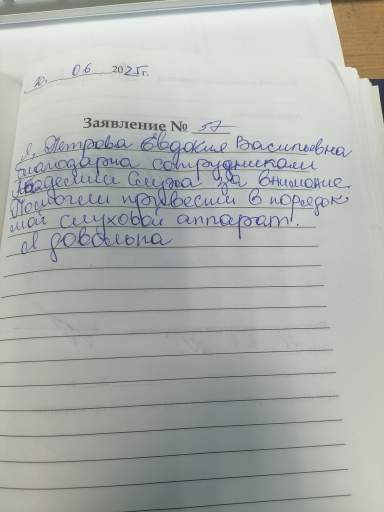 10. 06 2025г.
Заявление № 57
Я, Петрова Евдокия Васильевна
благодарна сотрудникам
Академии Слуха за внимание.
Помогли привести в порядок
мой слуховой аппарат.
Я довольна